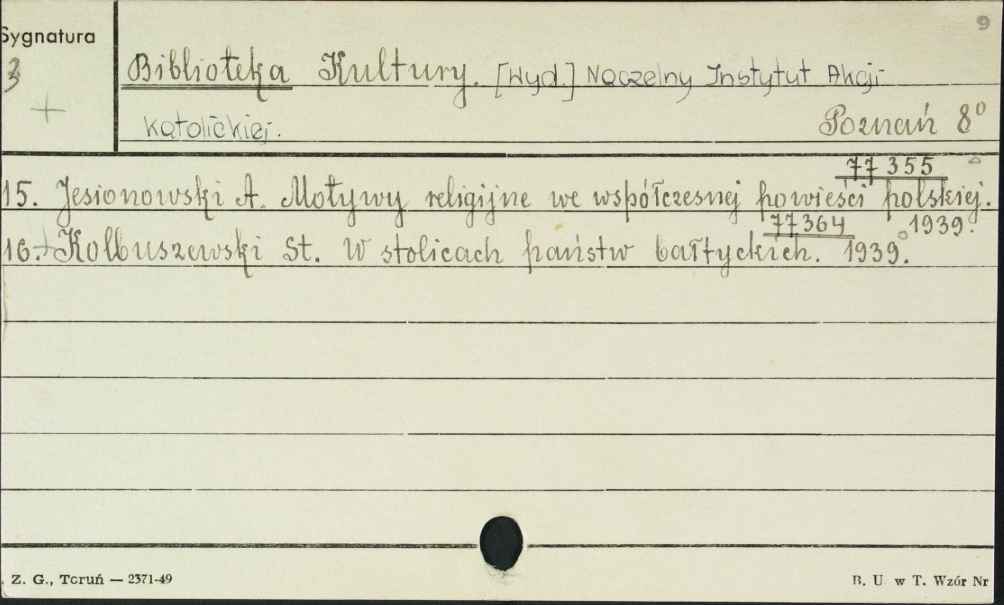 9
Sygnatura
3
+
Biblioteka Kultury. [Wyd.] Naczelny Instytut Akcji
Katolickiej.
Poznań 8°
77 355
15. Jesionowski A. Motywy religijne we współczesnej powieści polskiej.
77364 1939.
16.+ Kolbuszewski St. W stolicach państw bałtyckich. 1939.
Z. G., Toruń — 2371-49
B. U. w T. Wzór Nr